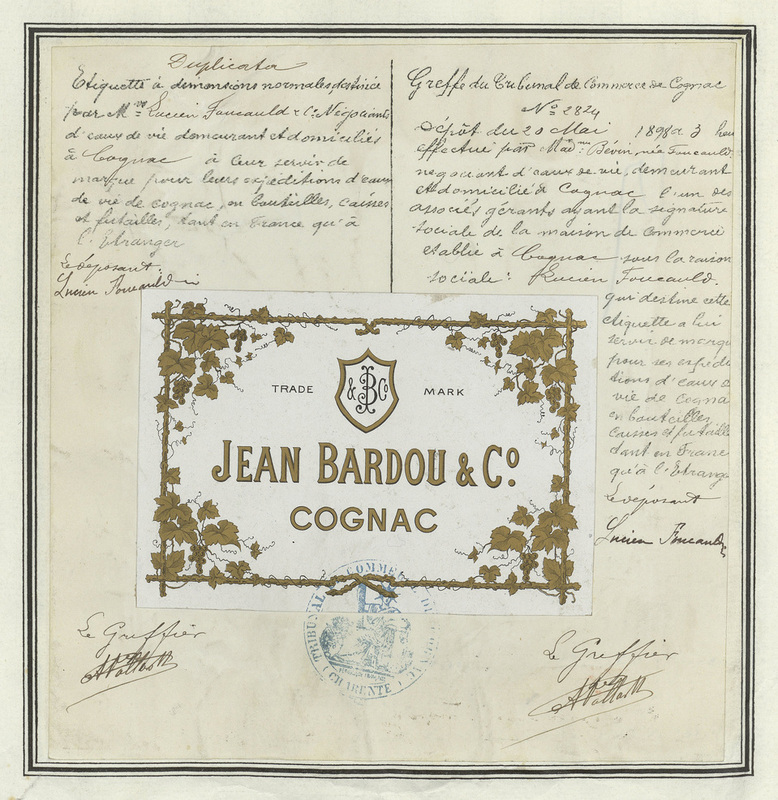 Duplicata
Etiquette à dimensions normales, destinée
par Mrs Lucien Foucauld & Cie Négociants
d'eaux de vie demeurant et domiciliés
à Cognac à leur servir de
marque pour leurs expéditions d'eaux
de vie de cognac, en bouteilles, caisses
et futailles, tant en France qu'à
l'Etranger
Le déposant:
Lucien Foucauld
Greffe du Tribunal de Commerce de Cognac
No 2824
Dépôt du 20 Mai 1898 à 3 heu
effectué par Made Bévin, née Foucauld
négociant d'eaux de vie, demeurant
et domicilié à Cognac l'un des
associés gérants ayant la signature
sociale de la maison de Commerce
établie à Cognac sous la raison
sociale: Lucien Foucauld.
qui destine cette
étiquette à lui
servir de marqu
pour ses expédi
tions d'eaux d
vie de cogna
en bouteilles,
caisses et futaille
tant en France
qu'à l'Etrange
Le déposant
Lucien Foucauld
TRADE MARK
& B Co
JEAN BARDOU & Co
COGNAC
TRIBUNAL DE COMMERCE DE COGNAC
(CHARENTE)
Le Greffier
Le Greffier